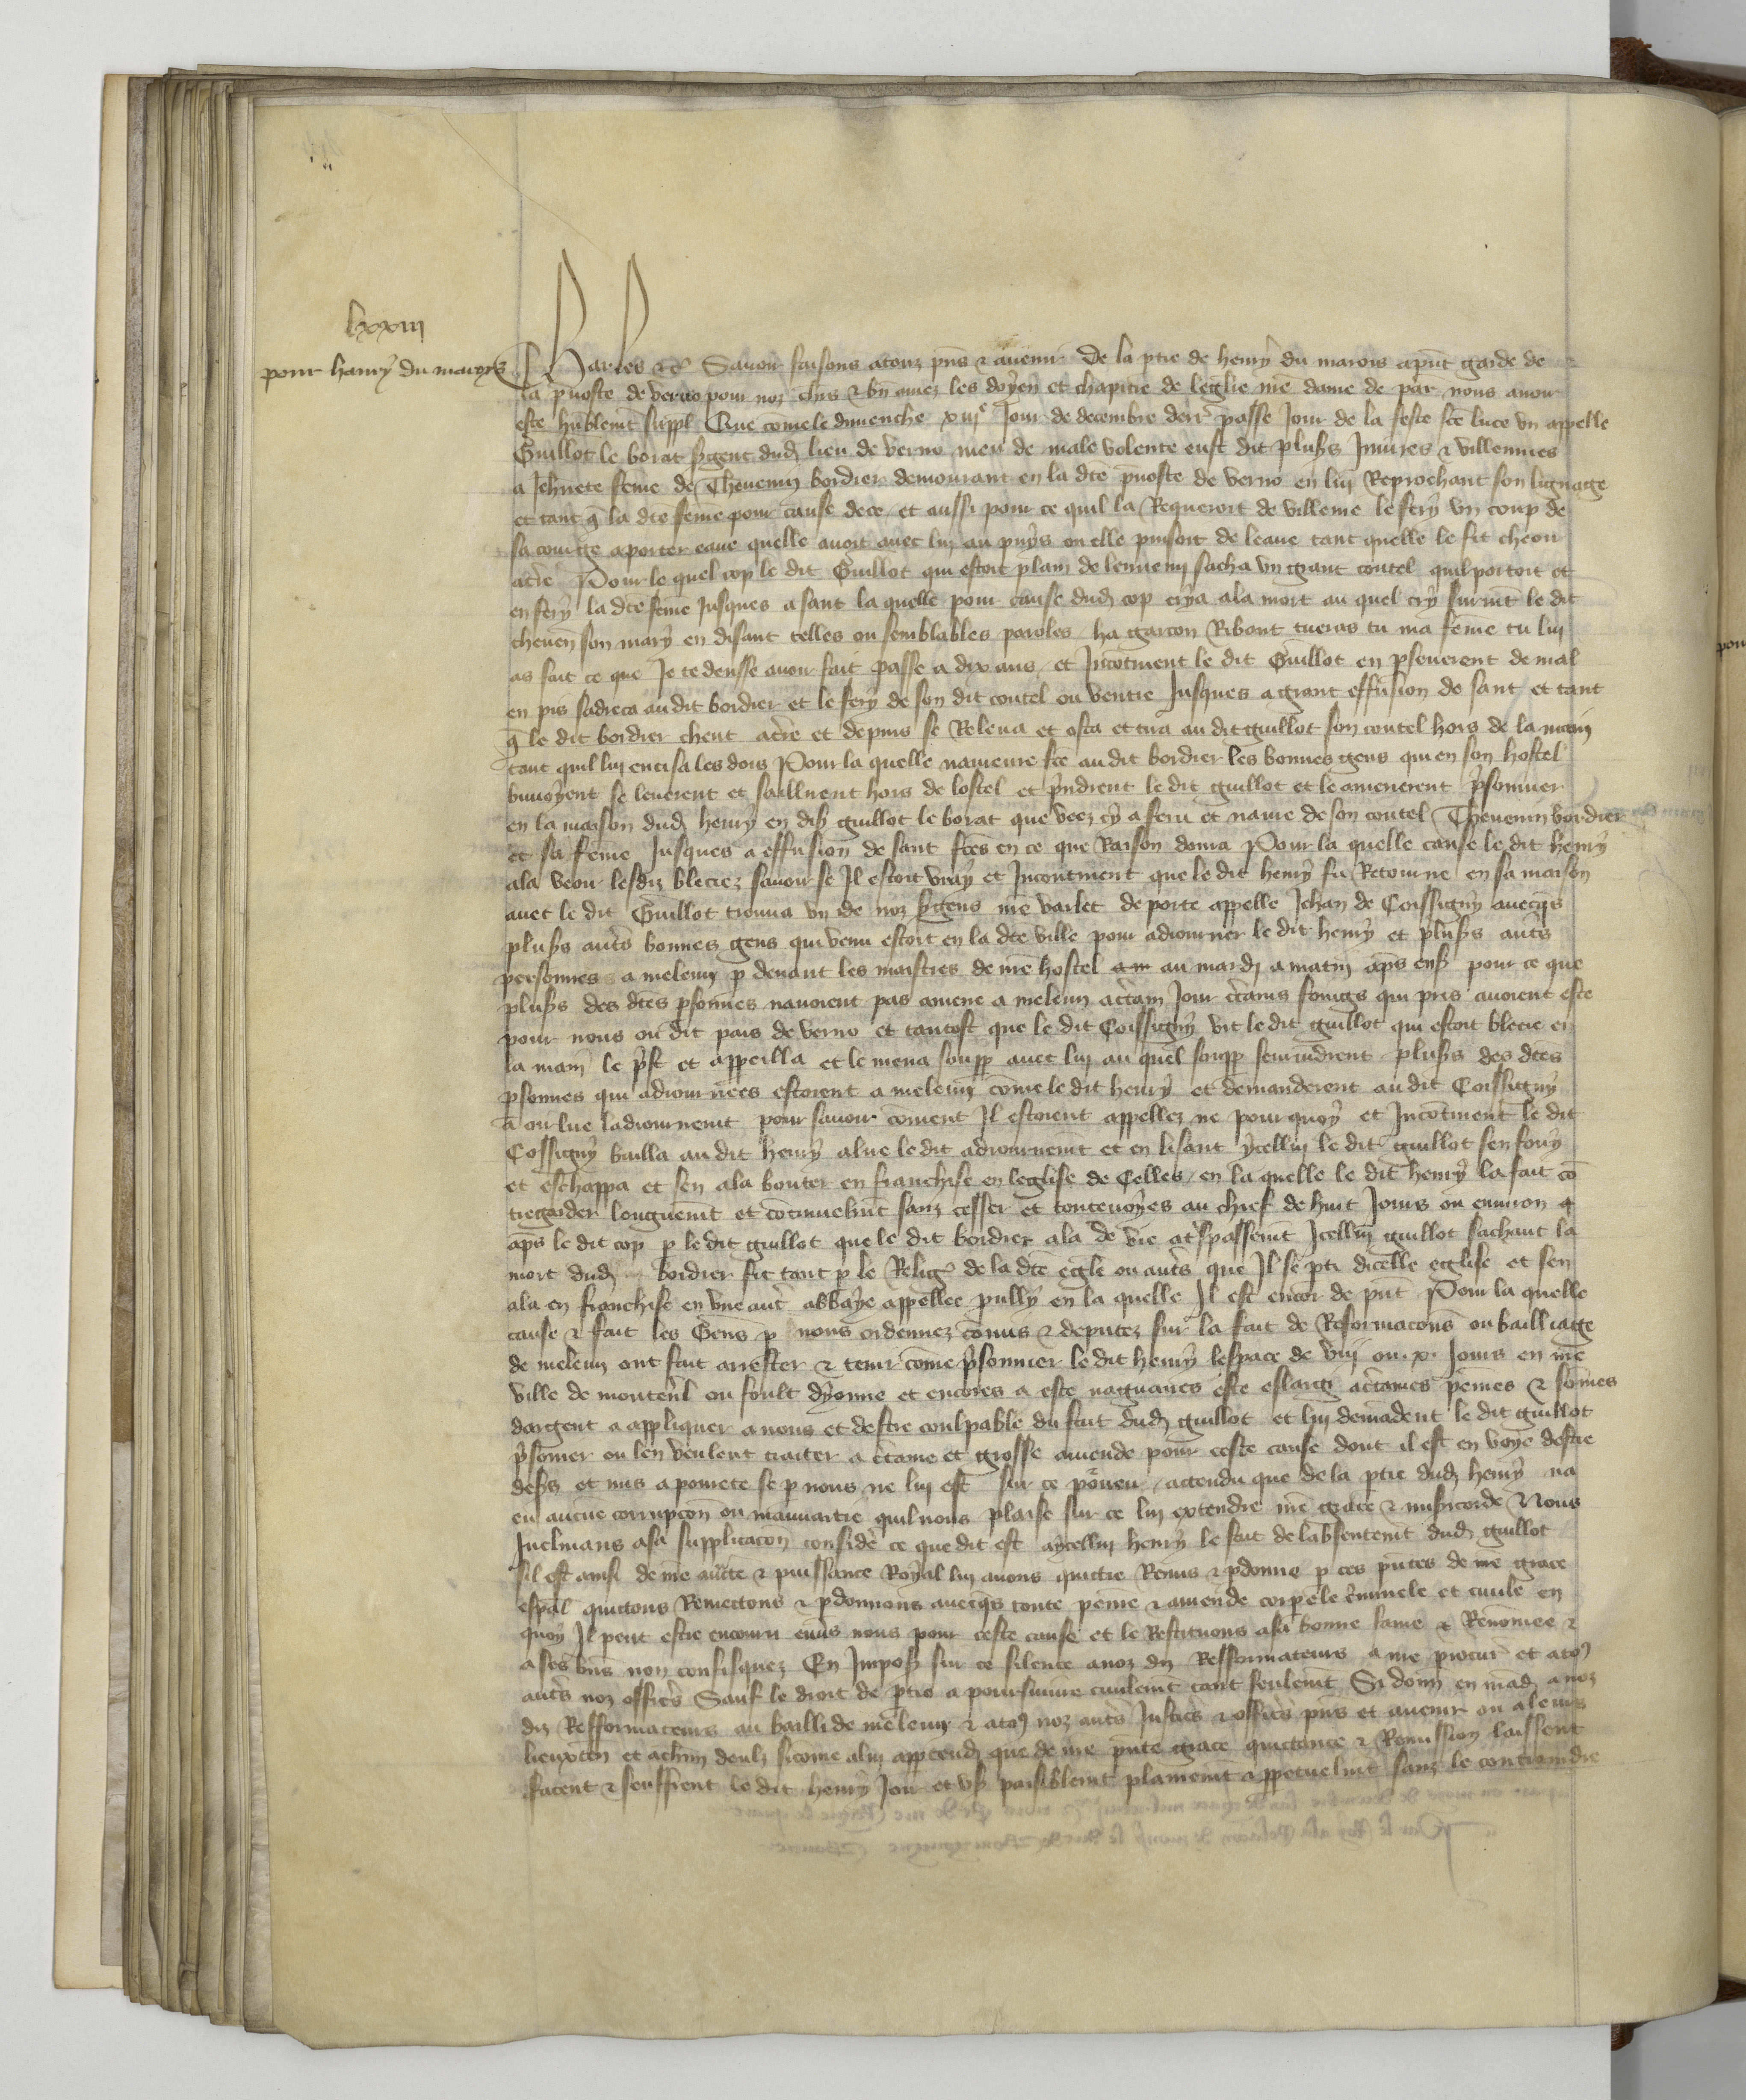 lxxiii
pour hanry du maroys
Charles etc̃ Savoir faisons a touz p̃ns & avenir De la ptie de henry du marois a p̃nt garde de
la p̃voste de verno pour noz chrs & bn̄ amez les doyen et chapitre de leglise n̄re dame de par nous avoir
este hūblemēt suppl Que cōme le dimenche xiiie jour de decembre derr̄ passe jour de la feste sc̄e luce un appelle
Guillot le borat sgent dud lieu de verno meu de male volente eust dit plusrs Injures & villennies
a Jehnete fēme de Thevenin bordier demourant en la dc̄e p̄voste de verno en lui Reprochant son lignage
et tant q̄ la dc̄e fēme pour cause de ce / et aussi pour ce quil la Requeroit de villenie le fery un coup de
sa courge a porter eaue quelle avoit avec lui au puys ou elle puisoit de leaue tant quelle le fit cheoir
a t̄re Pour le quel cop le dit Guillot qui estoit plain de lennemi sacha un grant coutel quil portoit et
en fery la dc̄e fēme jusques a sanc la quelle pour cause dud cop crya a la mort au quel cry survīt le dit
theven son mary en disant telles ou semblables paroles / ha garcon Ribout tueras tu ma fēme tu lui
as fait ce que Je te deusse avoir fait passe a dix ans / et Incōtinent le dit Guillot en pseverent de mal
en pis sadreca au dit bordier et le fery de son dit coutel ou ventre jusques a grant effusion de sanc et tant
q̄ le dit bordier cheut a t̄re et depuis se Releva et osta et tira au dit guillot son coutel hors de la main
tant quil lui encisa les dois Pour la quelle navreure fc̄e au dit bordier les bonnes gens qui en son hostel
buvoyent se leverent et saillirent hors de lostel et p̄ndrent le dit guillot et le amenerent p̄sonnier
en la maison dud henry en dis guillot le borat que veez cy a feru et navre de son coutel Thevenin bordier
et sa fēme jusques a effusion de sanc fc̄es en ce que Raison donra Pour la quelle cause le dit henry
ala veoir lesdiz bleciez savoir se Il estoit vray et Incontinent que le dit henry fu Retourne en sa maison
avec le dit Guillot trouva un de noz sgens n̄re varlet de porte appelle Jehan de Coissigny avecqs
plusrs autrs bonnes gens qui venu estoit en la dc̄e ville pour adjourner le dit henry et plusrs autrs
personnes a meleun p devant les maistres de n̄re hostel au mardi a matin ap̄s ens pour ce que
plusrs des dc̄es psonnes navoient pas amene a meleun a c̄tain jour c̄tains fourrgs qui pris avoient este
pour nous ou dit pais de verno et tantost que le dit Coissigny vit le dit guillot qui estoit blecie en
la main le p̄st et appeilla et le mena soupp avec lui au quel soupp seurvīdrent plusrs des dc̄es
psonnes qui adjournees estoient a meleun cōme le dit henry et demanderent au dit Coissigny
a oir lire ladjournemt pour savoir cōment Il estoient appellez ne pour quoy et Incōtinent le dit
Cossigny bailla au dit henry a lire le dit adjournemt et en lisant ycellui le dit guillot sen fouy
et eschappa et sen ala bouter en franchise en leglise de Celles / en la quelle le dit henry la fait cō
tregarder longuemt et cōtinuelmt sanz cesser et toutevoyes au chief de huit jours ou environ q
ap̄s le dit cop p le dit guillot que le dit bordier ala de vie a trspassemt Icellui guillot sachant la
mort dud bordier fit tant p le Relig̃ de la dc̄e egle ou autrs que Il se pti dicelle eglise et sen
ala en franchise en une autr abbaye appellee pully en la quelle Il est encor de p̃nt Pour la quelle
cause & fait les Gens p nous ordennez cōmis & deputez sur la fait de Reformacōns ou bailliage
de meleun ont fait arrester & tenir cōme p̄sonnier le dit henry lespace de viij ou .x. jours en n̄re
ville de monterel ou foult dyonne et encores a este naguaires este eslargi a c̄taines peines & sōmes
dargent a appliquer a nous et destre coulpable du fait dud guillot et lui demādent le dit guillot
p̄sonnier ou len veulent traitier a c̄taine et grosse amende pour ceste cause dont il est en voye destre
dess et mis a povrete se p nous ne lui est sur ce pourveu / actendu que de la ptie dud henry na
eu aucūe corrupcōn ou mauvaitie quil nous plaise sur ce lui extendre n̄re grace & miscorde Nous
Inclinans a sa supplicacōn considē ce que dit est a ycellui henry le fait de labsentemt dud guillot
sil est ainsi de n̄re auctte & puissance Royal lui avons quictie Remis & pdonne p ces p̄ntes de n̄re grace
esp̄al quictons Remectons & pdonnons avecqs toute peine & amende corpele c̄minele et civile en
quoy Il peut estre encouru envs nous pour ceste cause et le Restituons a sa bonne fame & Renōmee &
a ses bns non confisquez En Impos sur ce silence a noz diz Refformateurs a n̄re procur̄ et a tos
autrs noz officrs Sauf le droit de ptie a poursuivre civilemt tant seulemt Si donn en mād a noz
diz Refformateurs au bailli de meleun & a tos noz autrs Justicrs & officrs p̃ns et avenir ou a leurs
lieuxten et a chūn deulz si cōme a lui apptendr que de n̄re p̄nte grace quictance & Remission laissent
facent & seuffrent le dit henry joir et us paisiblemt plainemt & ppetuelmt sanz le contraindre